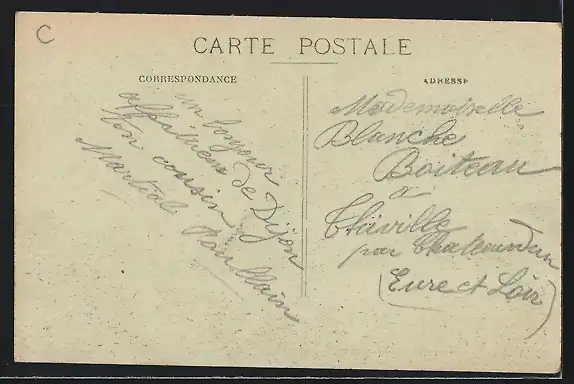 C
CARTE POSTALE
CORRESPONDANCE
ADRESSE
un bonjour
affectueux de Dijon
Ton cousin
Martial
Mademoiselle
Blanche
Boiteau
a
par Chateaudun
(Eure et Loir)